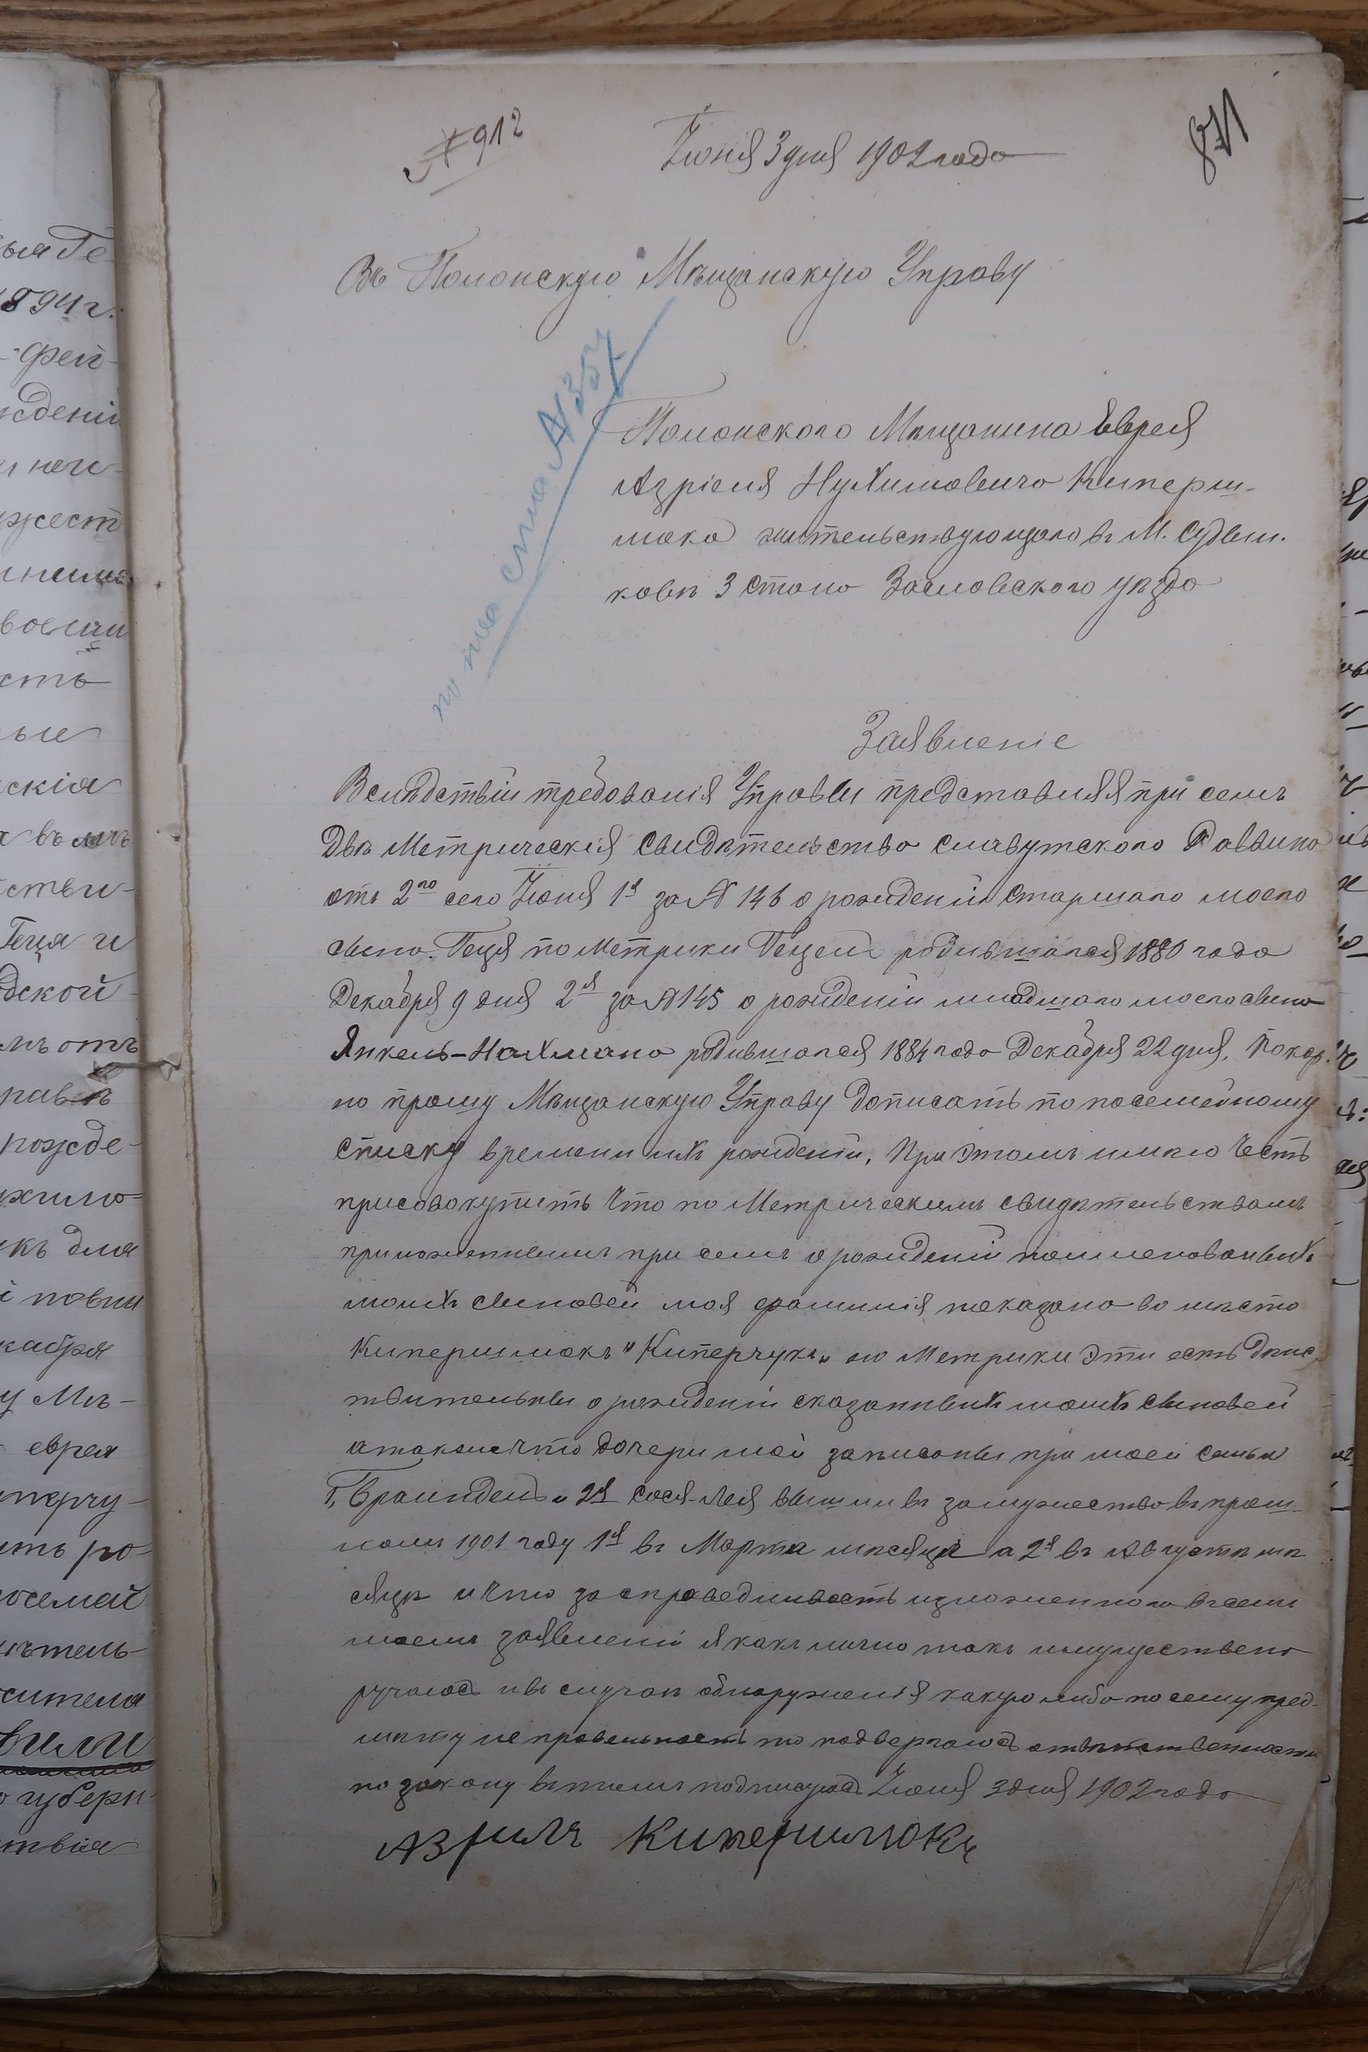 № 912
Іюня 3 дня 1902 года
Въ Полонскую Мѣщанскую Управу
по пос списка № 357
Полонского Мѣщанина Еврея
Азріеля Нухимовича Киперш-
мока жительствующаго въ М. Судыл-
ковѣ 3 стана Заславского уѣзда
Заявленіе
Вслѣдствіи требованія Управы представляя при семъ
Двѣ Метрическія свидѣтельства Славутского Раввина
отъ 2го сего Іюня 1я за № 146 о рожденіи старшаго моего
сына Геця по Метрики Гецель родившагося 1880 года
Декабря 9 дня 2я за № 145 о рожденіи младшаго моего сына
Янкель-Нахмана родившагося 1884 года Декабря 22 дня. Покор-
но прошу Мѣщанскую Управу дописать по посемейному
списку времени ихъ рожденіи, При этомъ имѣю честь
присовокупить что по Метрическимъ свидѣтельствамъ
приложеннымъ при семъ о рожденіи поименованныхъ
моихъ сыновей моя фамилія показана во мѣсто
Кипершмокъ "Киперчукъ" но Метрики эти есть дѣйс-
твительны о рожденіи сказанныхъ моихъ сыновей
а также что дочери мои записаны при моей семьи
1, Браинделъ и 2я Сося-Лея вышли въ замужество въ прош-
ломъ 1901 году 1я въ Марта мѣсяца а 2я въ Августа мѣ
сяцѣ и что за справедливость изложенного въ семъ
моемъ заявленіи я какъ лично такъ имущественно
ручаюсь и въ случаѣ обнаруженія какую либо по сему пред-
мѣту не правельность то подвергаюсь отвѣтственности
по закону въ томъ подписуюсь Іюня 3 дня 1902 года
Азриль Кипершмокъ
ыя Ге
1894 г.
фей-
ждені
жест
воєши
сть
ые
скія
Геця и
дской
отъ
рожде-
къ для
кабря
у Мѣ-
еврея
перчу-
ть ро-
осемей
сителя
вили
губерн-
ствія